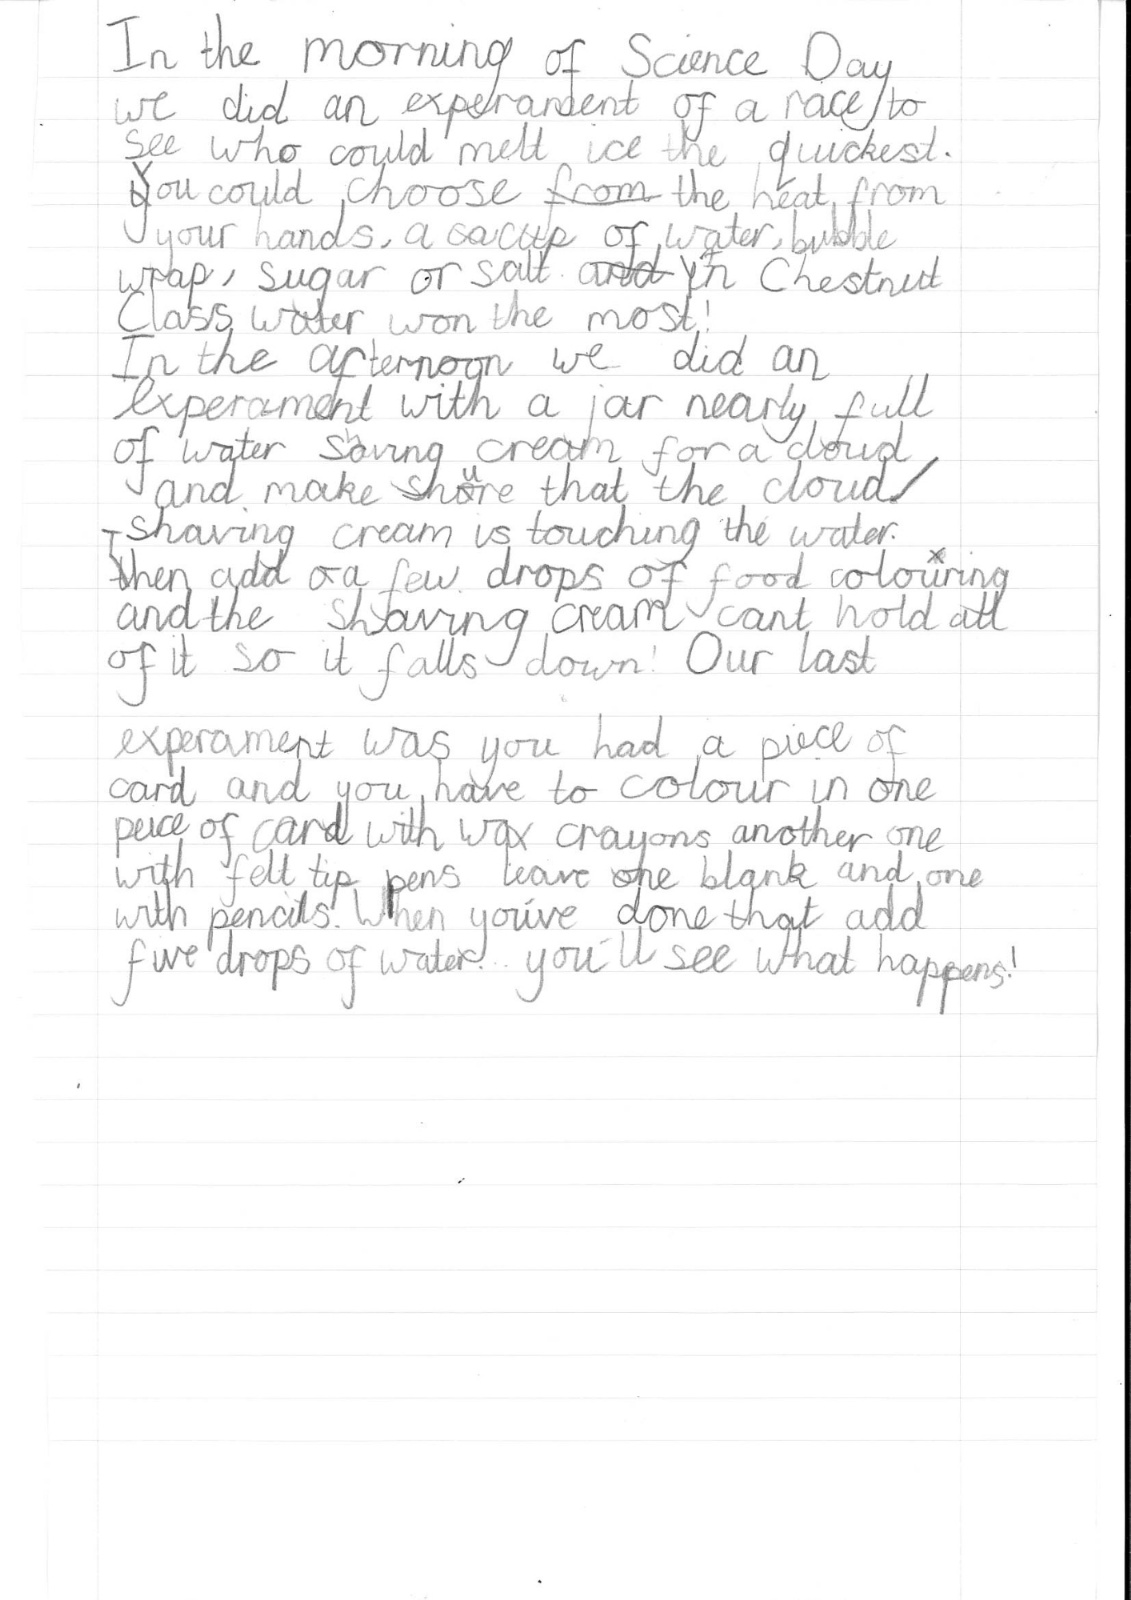 In the morning of Science Day
we did an experament of a race to
see who could melt ice the quickest.
You could choose from the heat from
your hands, a cup of water, bubble
wrap, sugar or salt. and In Chestnut
Class water won the most!
In the afternoon we did an
experament with a jar nearly full
of water shaving cream for a cloud
and make shure that the cloud/
shaving cream is touching the water.
Then add a few drops of food colouring
and the shaving cream cant hold all
of it so it falls down! Our last
experament was you had a piece of
card and you have to colour in one
peice of card with wax crayons another one
with felt tip pens leave one blank and one
with pencils. When you've done that add
five drops of water... you'll see what happens!